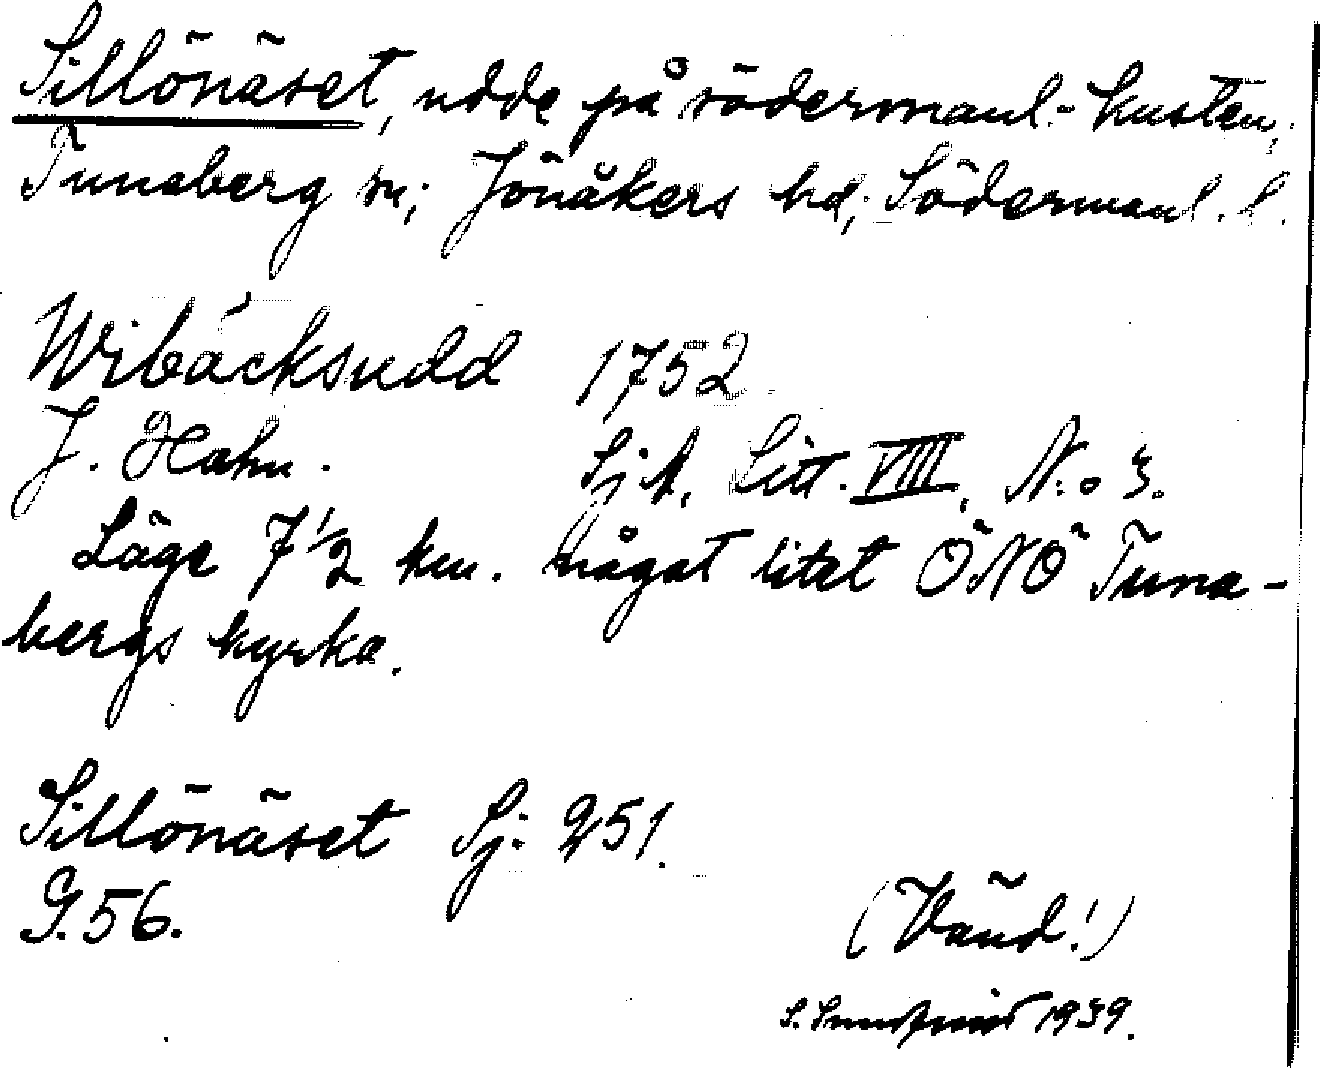 Sillönäset, udde på södermanl.-kusten,
Tunaberg sn; Jönåkers hd; Södermanl. l.
Wibäcksudd 1752
J. Hahn. Sjk. Litt. VIII, N:o 3.
Läge 7 1/2 km. något litet ÖNÖ Tuna-
bergs kyrka.
Sillönäset Sj. 251.
G. 56.
(Vänd!)
S. 1939.